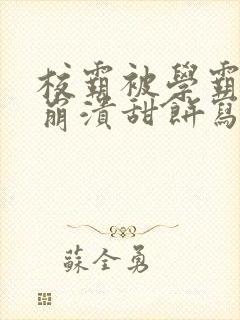 校霸被學霸
崩潰甜餅寫
蘇全勇